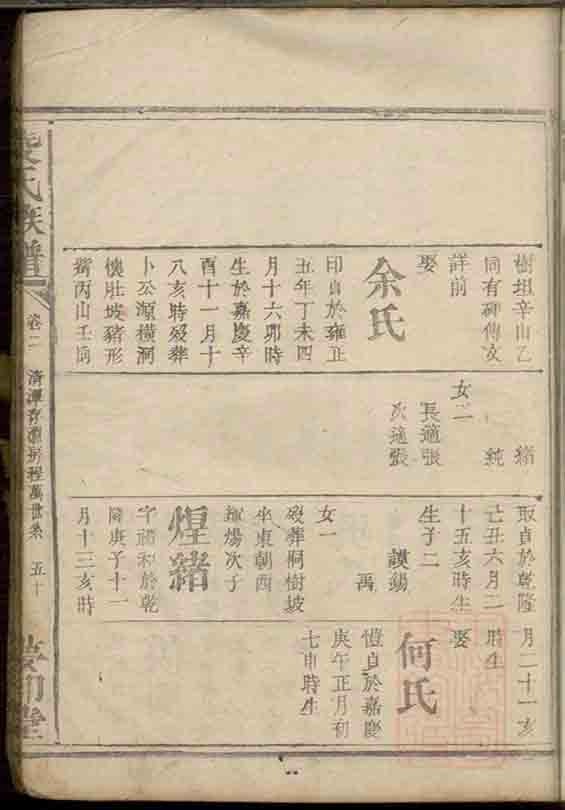 樹坦辛山乙
向有碑傳友
詳前
娶
余氏
印貞於雍正
五年丁未四
月十六卯時
生於嘉慶辛
酉十一月十
八亥時歿葬
卜公源橫洞
壯坡豬形
丙山壬向
緒
純
女二
長適張
次適張
取貞於乾隆
己丑六月二
十五亥時生
生子二
謨錫
禹
女一
歿葬桐樹坡
坐東朝西
煬次子
煌緒
字禮和於乾
隆庚子十一
月十三亥時
月二十一亥
時生
娶
何氏
愷貞於嘉慶
庚午正月初
七申時生
氏族譜
卷二
清潭存淵房程萬世系
五十